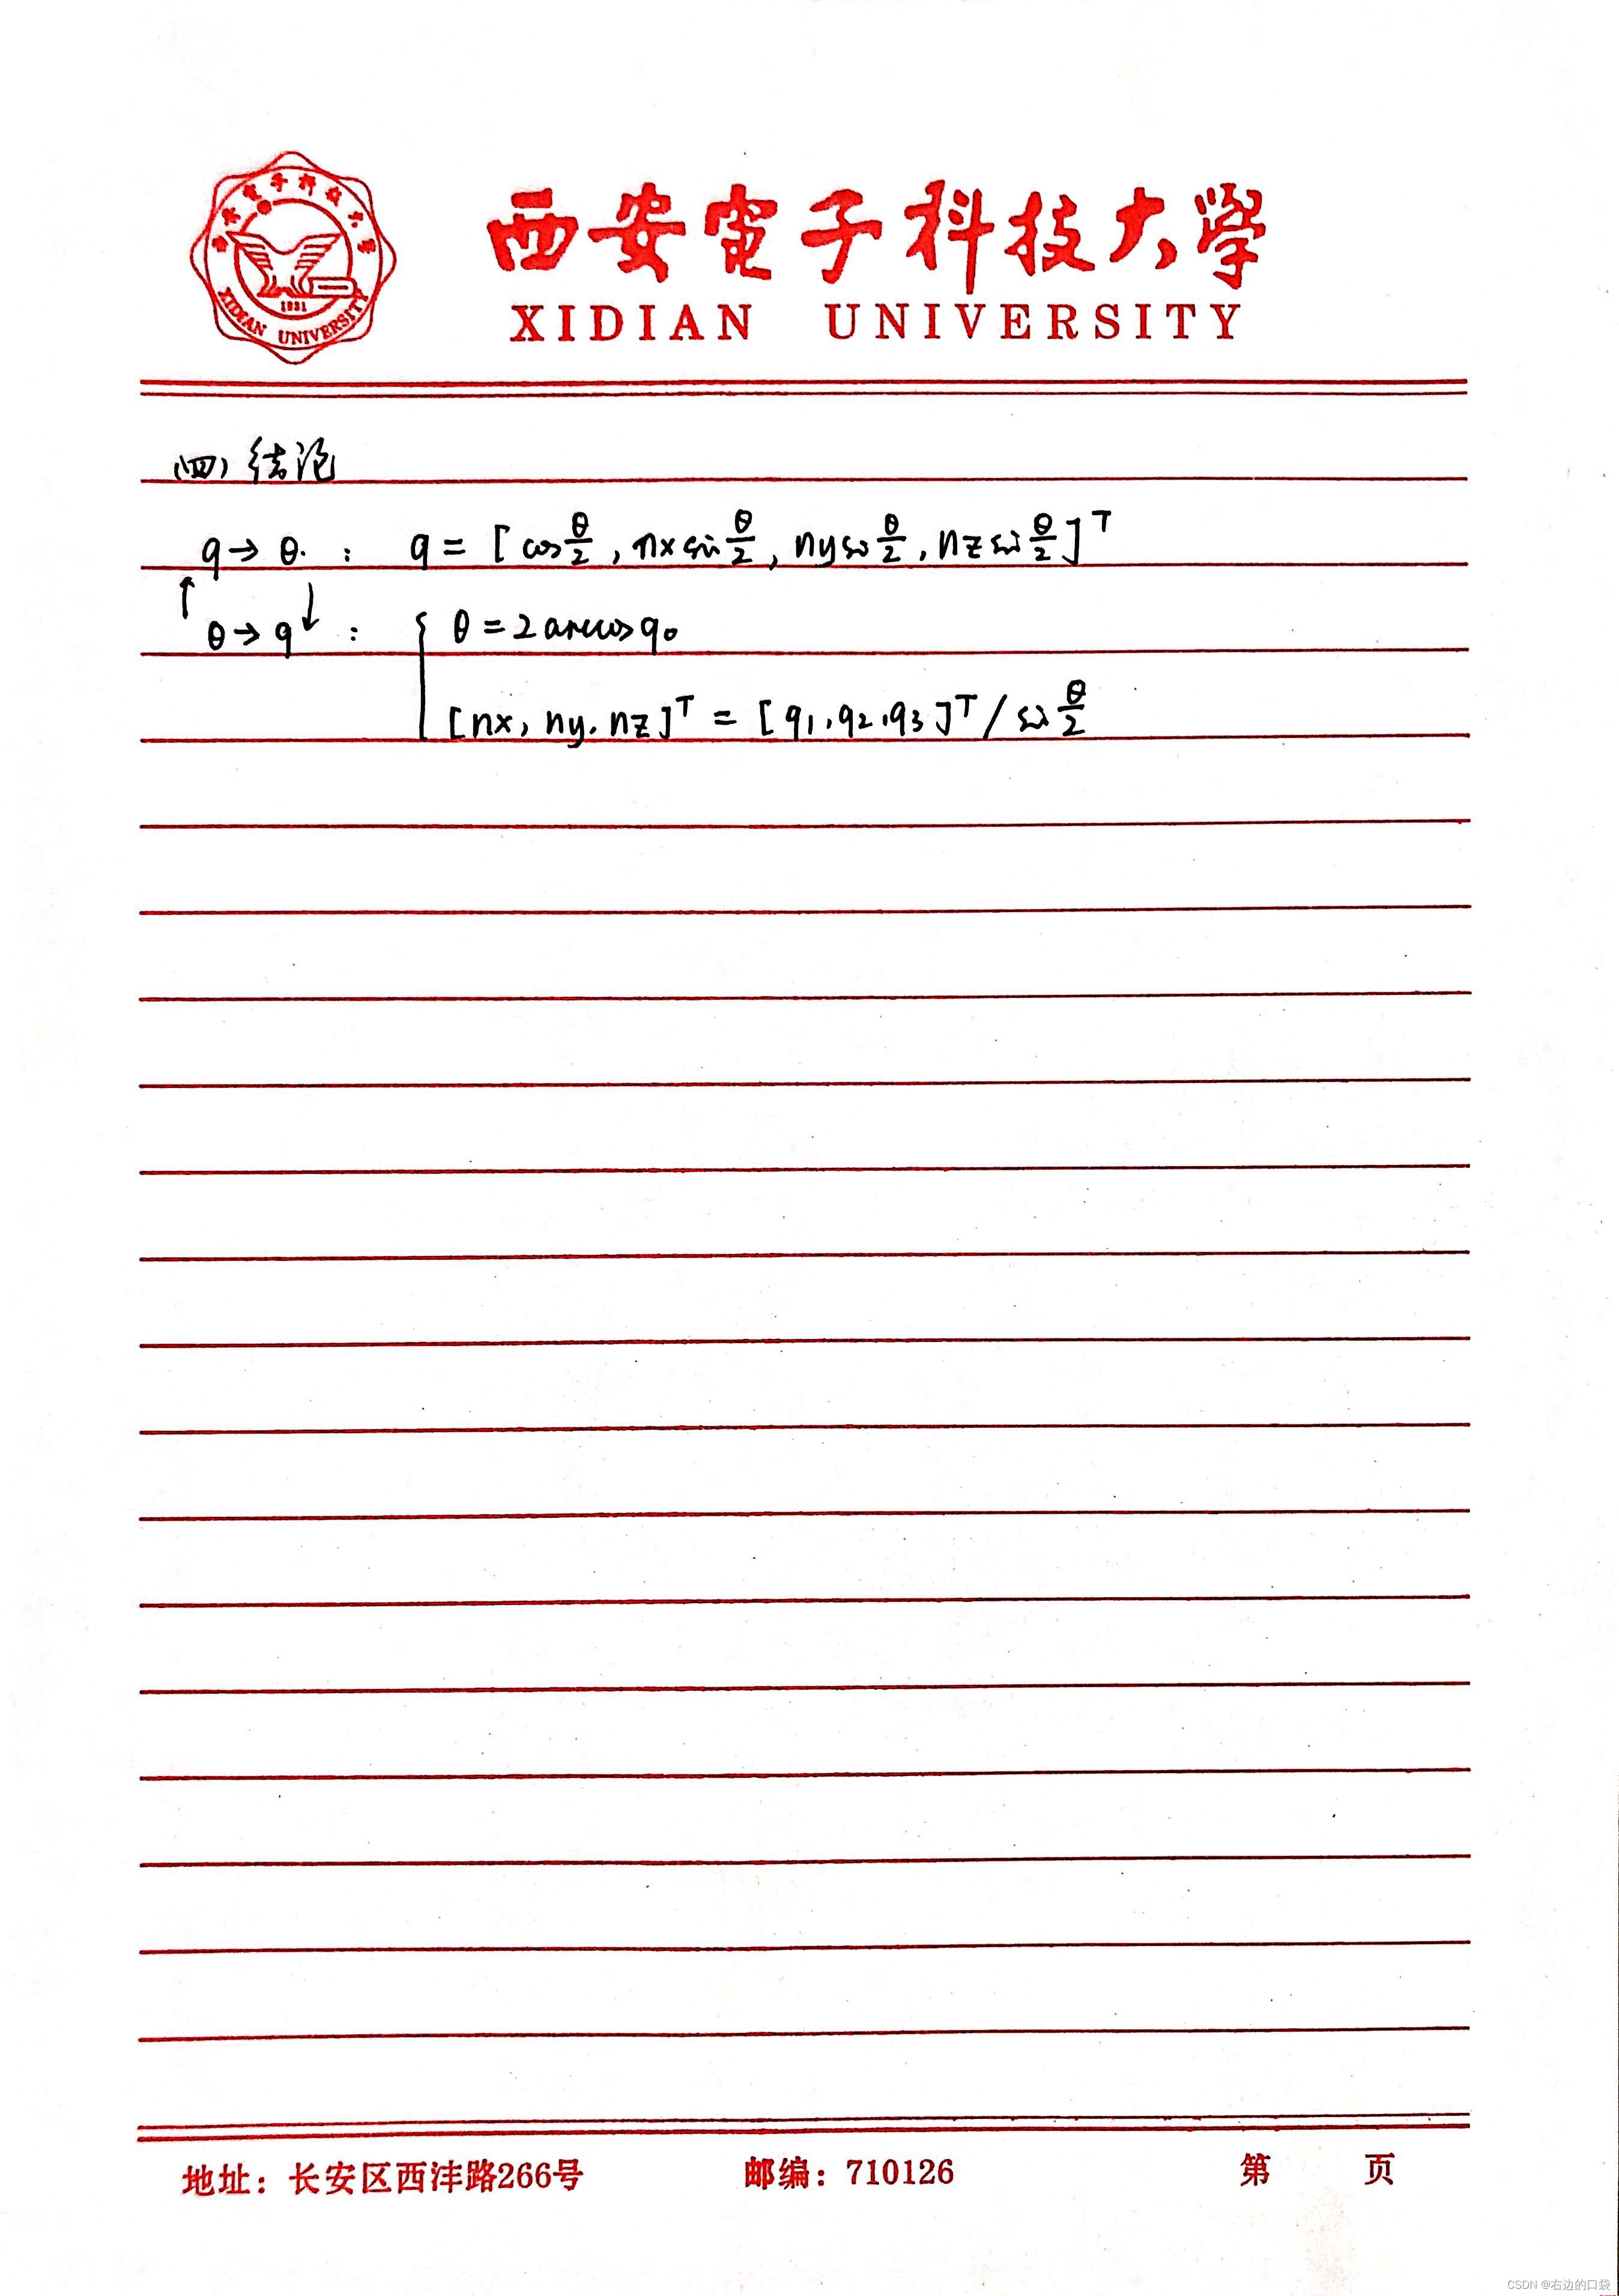 西安電子科技大學
XIDIAN UNIVERSITY
西安電子科技大學
1931
XIDIAN UNIVERSITY
(四) 结论
q → θ. : q = [cos θ/2, nx sin θ/2, ny sin θ/2, nz sin θ/2]ᵀ
↑ ↓
θ → q : { θ = 2 arccos q₀
[nx, ny, nz]ᵀ = [q₁, q₂, q₃]ᵀ / sin θ/2
地址：长安区西沣路266号 邮编：710126 第 页
CSDN @右边的口袋